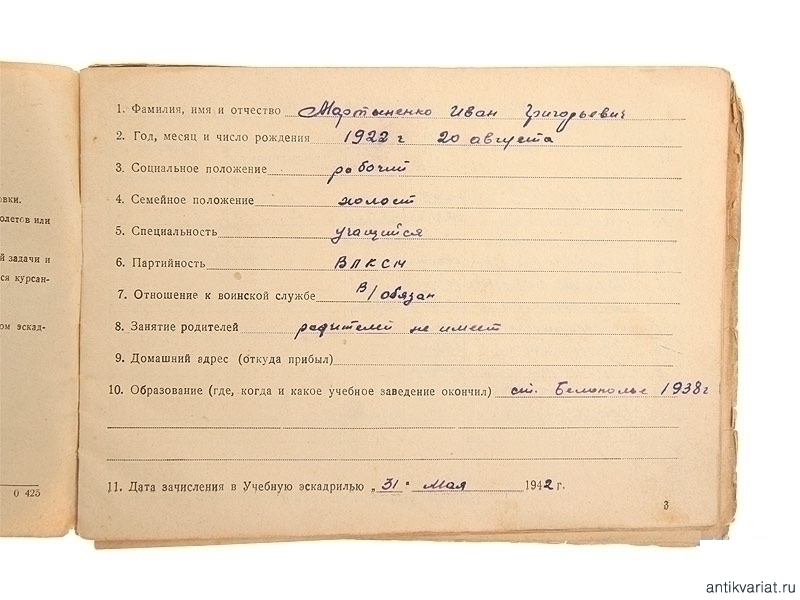 1. Фамилия, имя и отчество Мартыненко Иван Григорьевич
2. Год, месяц и число рождения 1922 г 20 августа
3. Социальное положение рабочий
4. Семейное положение холост
5. Специальность учащийся
6. Партийность ВЛКСМ
7. Отношение к воинской службе В/обязан
8. Занятие родителей родителей не имеет
9. Домашний адрес (откуда прибыл)
10. Образование (где, когда и какое учебное заведение окончил) ст. Белополье 1938 г
11. Дата зачисления в Учебную эскадрилью „31" Мая 1942 г.
3
овки.
олетов или
й задачи и
ся курсан-
ом эскад-
О 425
antikvariat.ru